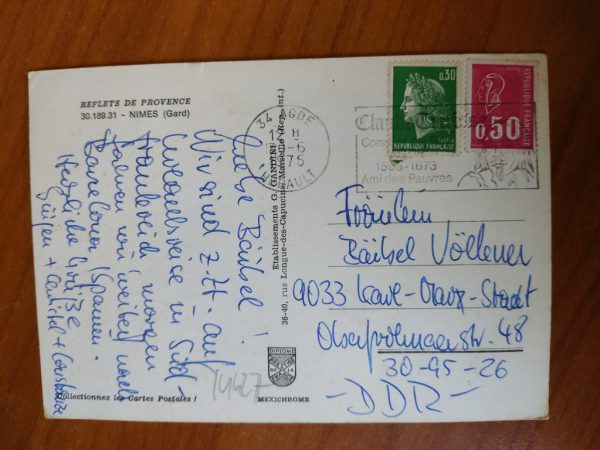 REFLETS DE PROVENCE
30.189.31 - NIMES (Gard)
Liebe Bärbel!
Wir sind z. Zt. auf
in Süd-
frankreich morgen
fahren wir weiter nach
Barcelona (Spanien.
Herzliche Grüße
Jürgen +
Etablissements G. GANDINI
36-40, rue Longue-des-Capucins, Marseille (Rep. int.)
DIPLOM
MEXICHROME
Collectionnez les Cartes Postales !
14427
0,30
REPUBLIQUE FRANÇAISE
REPUBLIQUE FRANÇAISE
0,50
34 AGDE
H
6
75
HERAULT
1673
Ami des Pauvres
Fräulein
Bärbel
9033 Karl-Marx-Stadt
str. 48
30-95-26
-DDR-